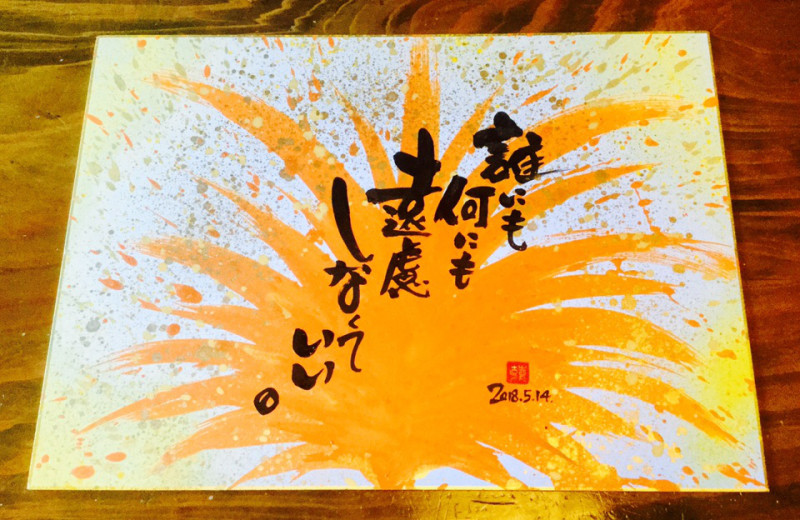 誰にも
何にも
遠慮
しなくて
いい。
2018.5.14.